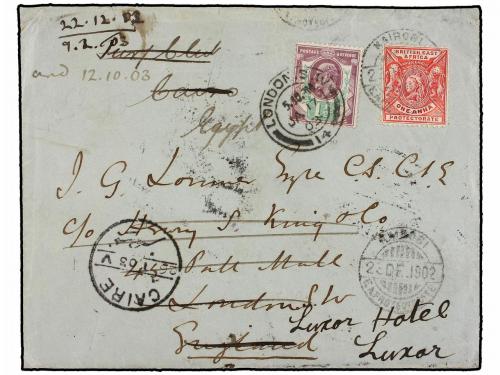 22.12.02
9.2.03
and 12.10.03
Cairo
Egypt
POSTAGE & REVENUE
LONDON
14
NAIROBI
BRITISH EAST
AFRICA
ONE ANNA
PROTECTORATE
J. G. Esqre C.S. C.I.E
c/o Henry S. King & Co
Pall Mall
London SW
England
Luxor Hotel
Luxor
CAIRE
NAIROBI
1902